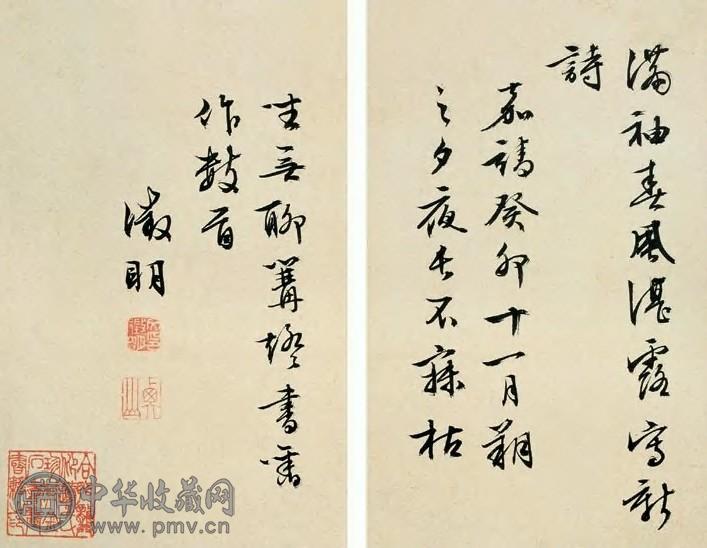 满袖春風湛露寫新
詩
嘉靖癸卯十一月朔
之夕夜長不寐枯
坐無聊篝燈書舊
作數首
徵明
中华收藏网
www.pmv.cn